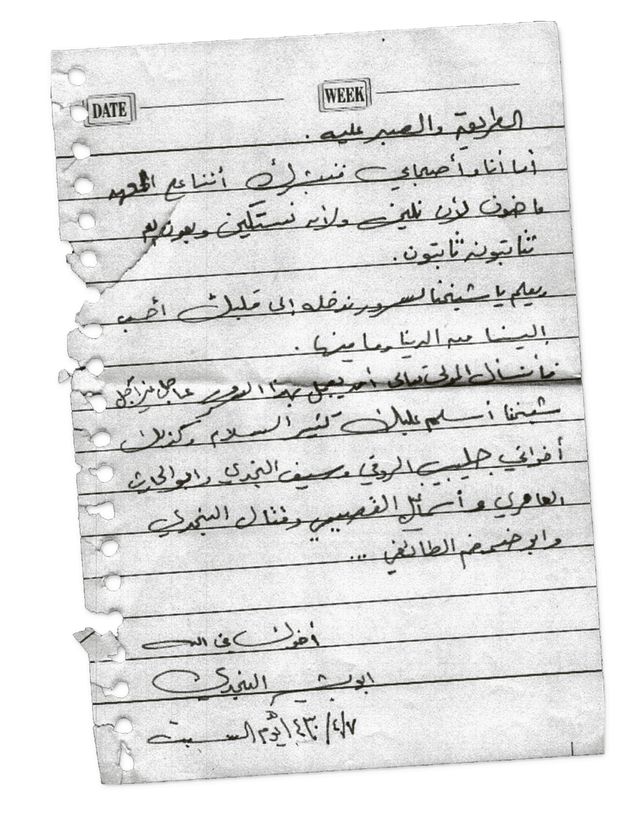 DATE WEEK
الطريق والصبر عليه .
أما أنا وأصحابي فنبشرك أننا على العهد
ماضون لن نلين ولن نستكين وبعون الله
ثابتون ثابتون .
يعلم يا شيخنا لسرور ندخله إلى قلبك أحب
إلينا من الدنيا وما فيها .
فأسأل المولى تعالى أن يعجل بهذا عاجل غير آجل
شيخنا أسلم عليك كثير السلام وكذلك
أخواني جليبيب الروقي وسيف النجدي وابو الحارث
العامري و القصيمي وقتال النجدي
وابو الطائفي ...
أخوك في الله
ابو النجدي
٤٣٠/٤/٧ ا يوم السبت